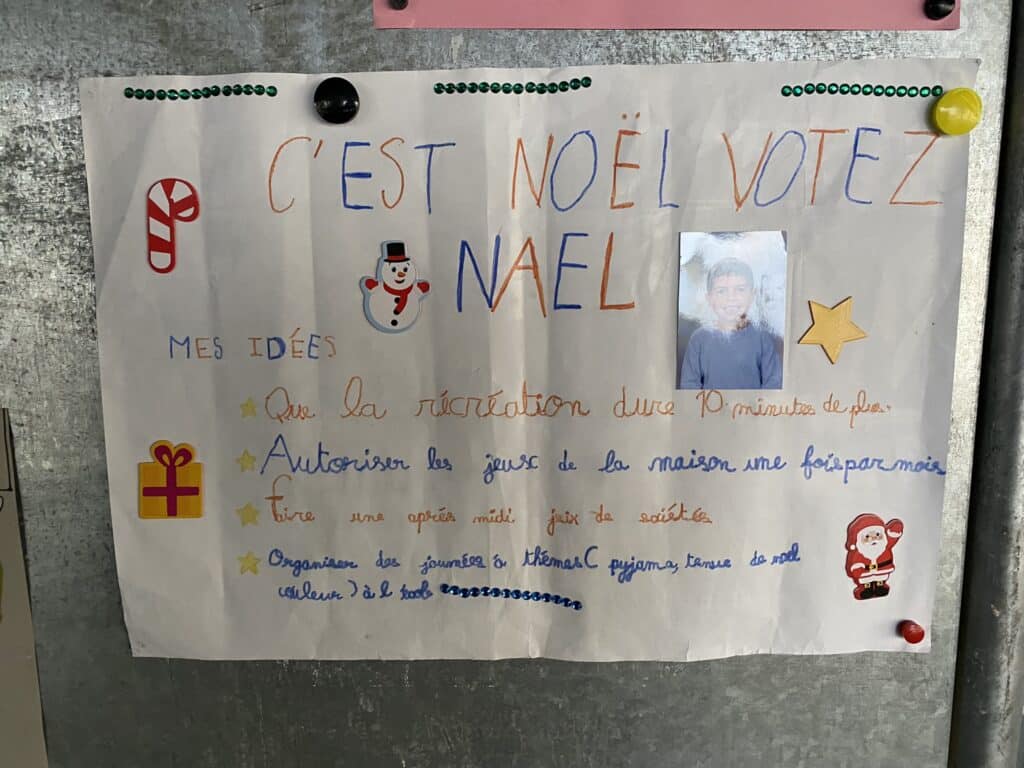 C'EST NOËL VOTEZ
NAEL
MES IDÉES
Que la récréation dure 10 minutes de plus.
Autoriser les jeux de la maison une fois par mois
faire une après midi jeux de sociétés
Organiser des journées à thèmes ( pyjama, tenue de noël
couleur ) à l'école